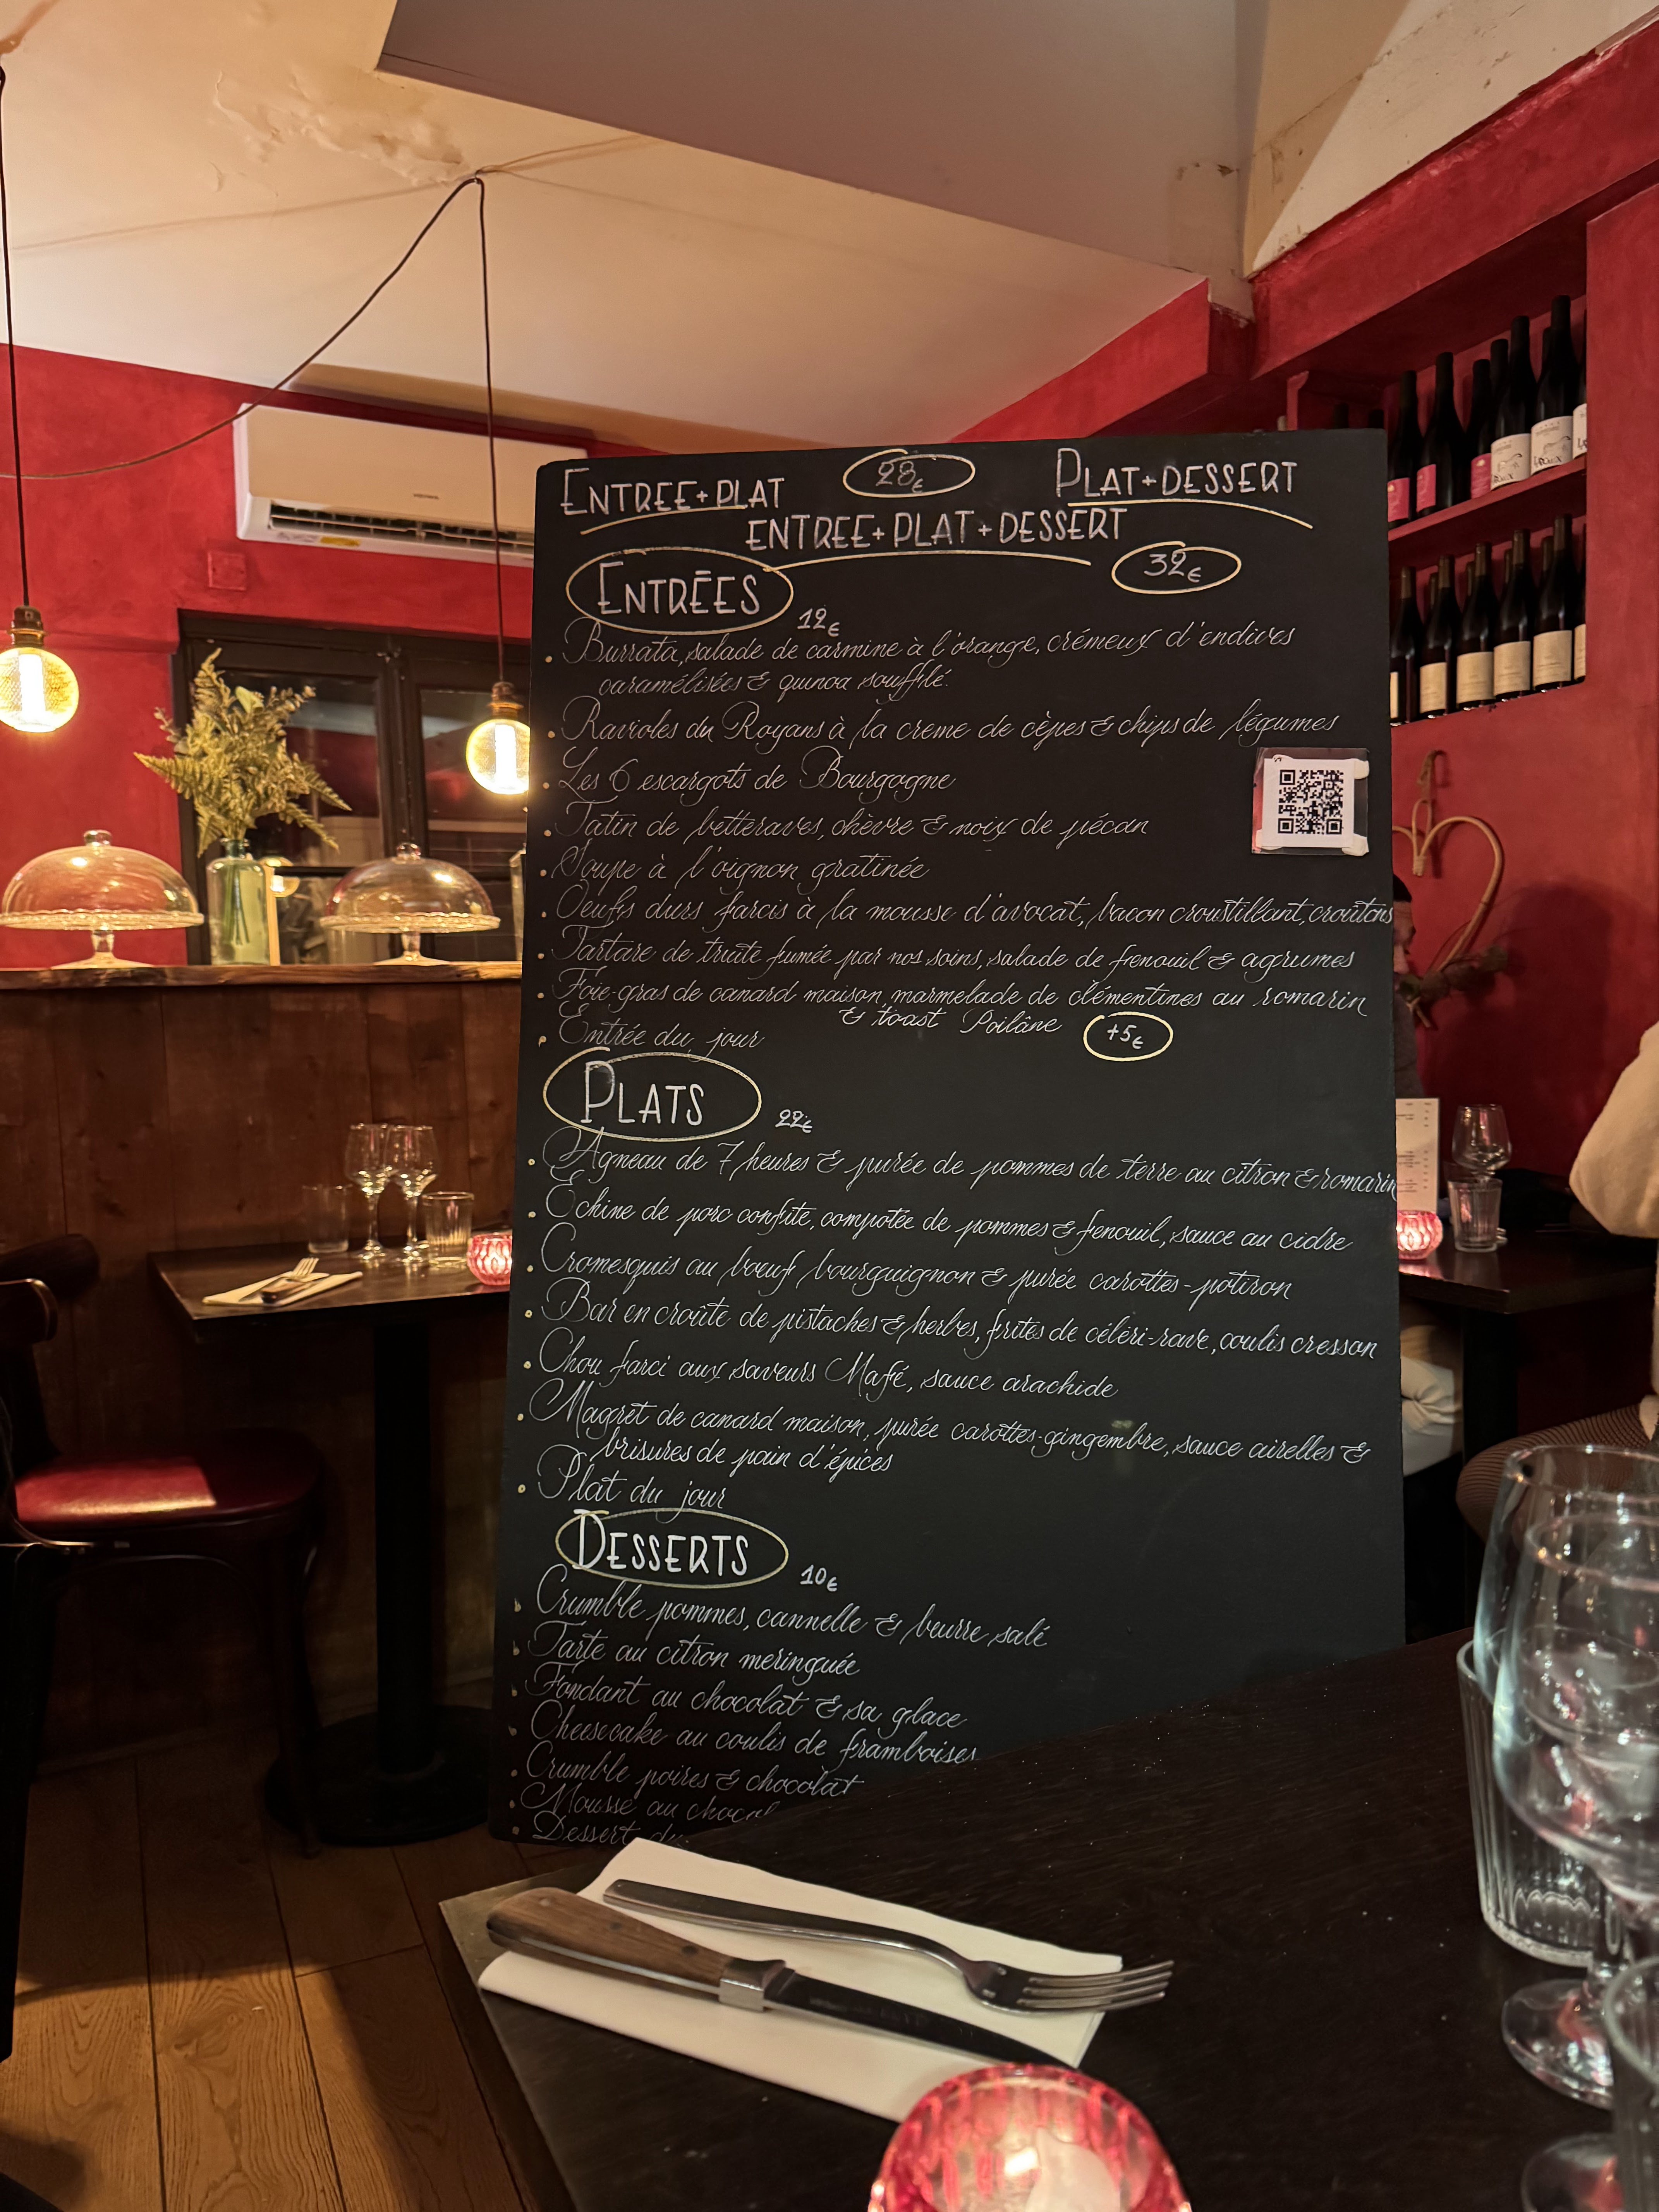 ENTREE+PLAT 28€ PLAT+DESSERT
ENTREE+PLAT+DESSERT
32€
ENTRÉES 12€
. Burrata, salade de carmine à l'orange, crémeux d'endives
caramélisées & quinoa soufflé.
. Ravioles du Royans à la creme de cèpes & chips de légumes
. Les 6 escargots de Bourgogne
. Tatin de betteraves, chèvre & noix de pécan
. Soupe à l'oignon gratinée
. Oeufs durs farcis à la mousse d'avocat, bacon croustillant, croûtons
. Tartare de truite fumée par nos soins, salade de fenouil & agrumes
. Foie-gras de canard maison, marmelade de clémentines au romarin
& toast Poilâne +5€
. Entrée du jour
PLATS 22€
. Agneau de 7 heures & purée de pommes de terre au citron & romarin
. Échine de porc confite, compotée de pommes & fenouil, sauce au cidre
. Cromesquis au bœuf bourguignon & purée carottes-potiron
. Bar en croûte de pistaches & herbes, frites de céleri-rave, coulis cresson
. Chou farci aux saveurs Mafé, sauce arachide
. Magret de canard maison, purée carottes-gingembre, sauce airelles &
brisures de pain d'épices
. Plat du jour
DESSERTS 10€
. Crumble pommes, cannelle & beurre salé
. Tarte au citron meringuée
. Fondant au chocolat & sa glace
. Cheesecake au coulis de framboises
. Crumble poires & chocolat
. Mousse au chocol
. Dessert du